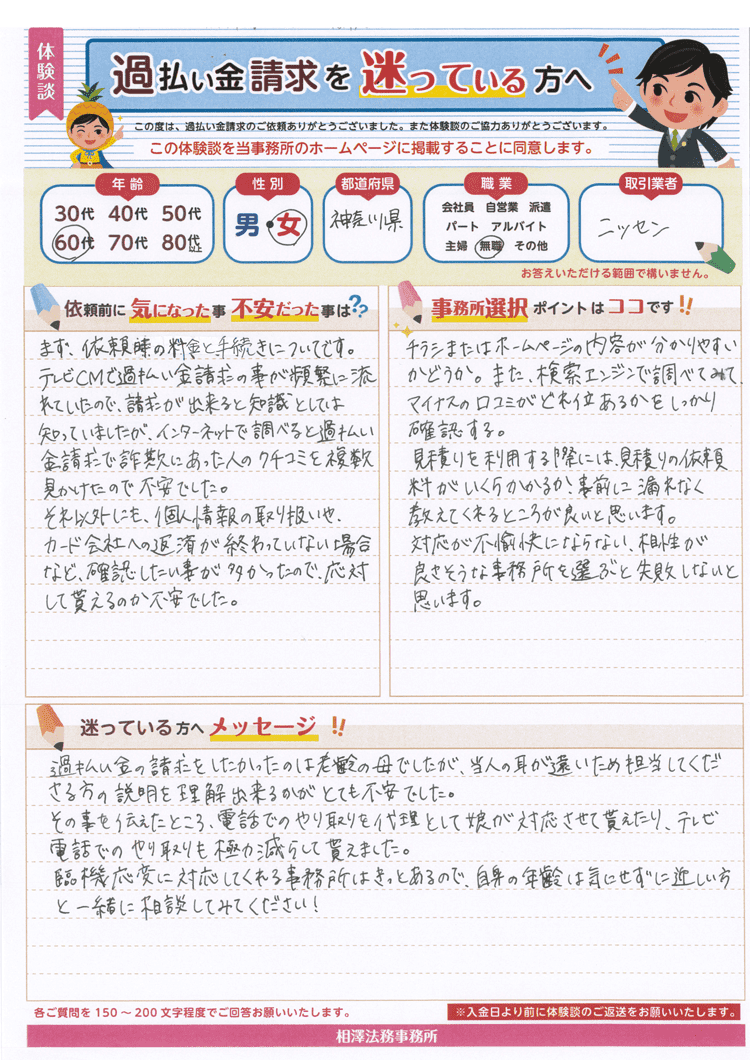 体験談
過払い金請求を迷っている方へ
この度は、過払い金請求のご依頼ありがとうございました。また体験談のご協力ありがとうございます。
この体験談を当事務所のホームページに掲載することに同意します。
年齢
30代 40代 50代
60代 70代 80代以上
性別
男・女
都道府県
神奈川県
職業
会社員 自営業 派遣
パート アルバイト
主婦 無職 その他
取引業者
ニッセン
お答えいただける範囲で構いません。
依頼前に気になった事 不安だった事は??
まず、依頼時の料金と手続きについてです。
テレビCMで過払い金請求の事が頻繁に流
れていたので、請求が出来ると知識としては
知っていましたが、インターネットで調べると過払い
金請求で詐欺にあった人のクチコミを複数
見かけたので不安でした。
それ以外にも、個人情報の取り扱いや、
カード会社への返済が終わっていない場合
など、確認したい事が多かったので、応対
して貰えるのか不安でした。
事務所選択ポイントはココです!!
チラシまたはホームページの内容が分かりやすい
かどうか。また、検索エンジンで調べてみて、
マイナスの口コミがどれ位あるかをしっかり
確認する。
見積りを利用する際には、見積りの依頼
料がいくらかかるか、事前に漏れなく
教えてくれるところが良いと思います。
対応が不愉快にならない、相性が
良さそうな事務所を選ぶと失敗しないと
思います。
迷っている方へメッセージ!!
過払い金の請求をしたかったのは老齢の母でしたが、当人の耳が遠いため担当してくだ
さる方の説明を理解出来るかがとても不安でした。
その事を伝えたところ、電話でのやり取りを代理として娘が対応させて貰えたり、テレビ
電話でのやり取りも極力減らして貰えました。
臨機応変に対応してくれる事務所はきっとあるので、自身の年齢は気にせずに近しい方
と一緒に相談してみてください!
各ご質問を150～200文字程度でご回答お願いいたします。
※入金日より前に体験談のご返送をお願いいたします。
相澤法務事務所